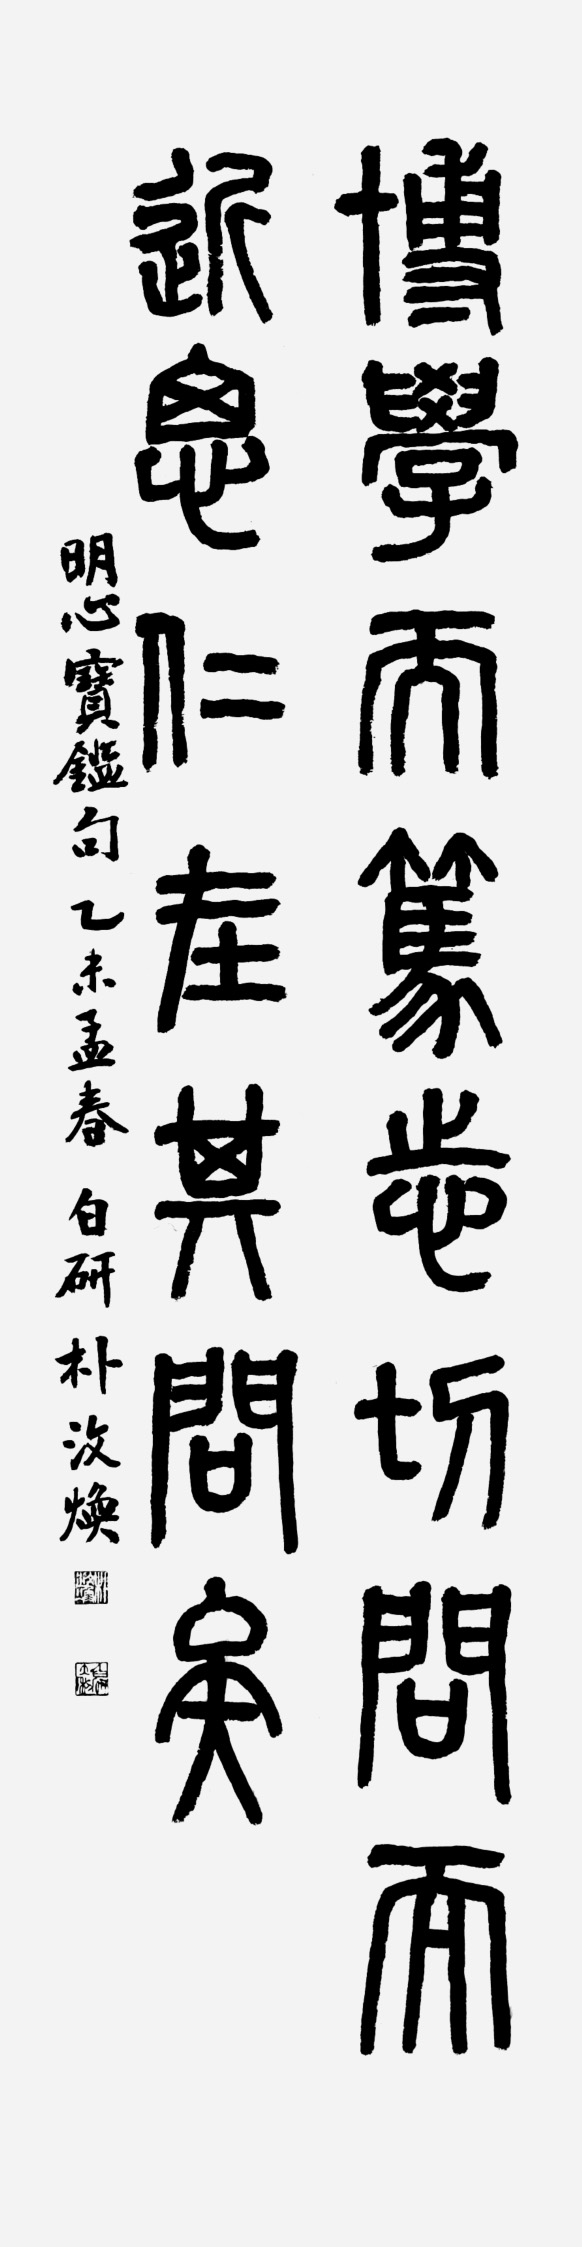 博學而篤志切問而
近思仁在其問矣
明心寶鑑句 乙未孟春 白硏 朴汶煥